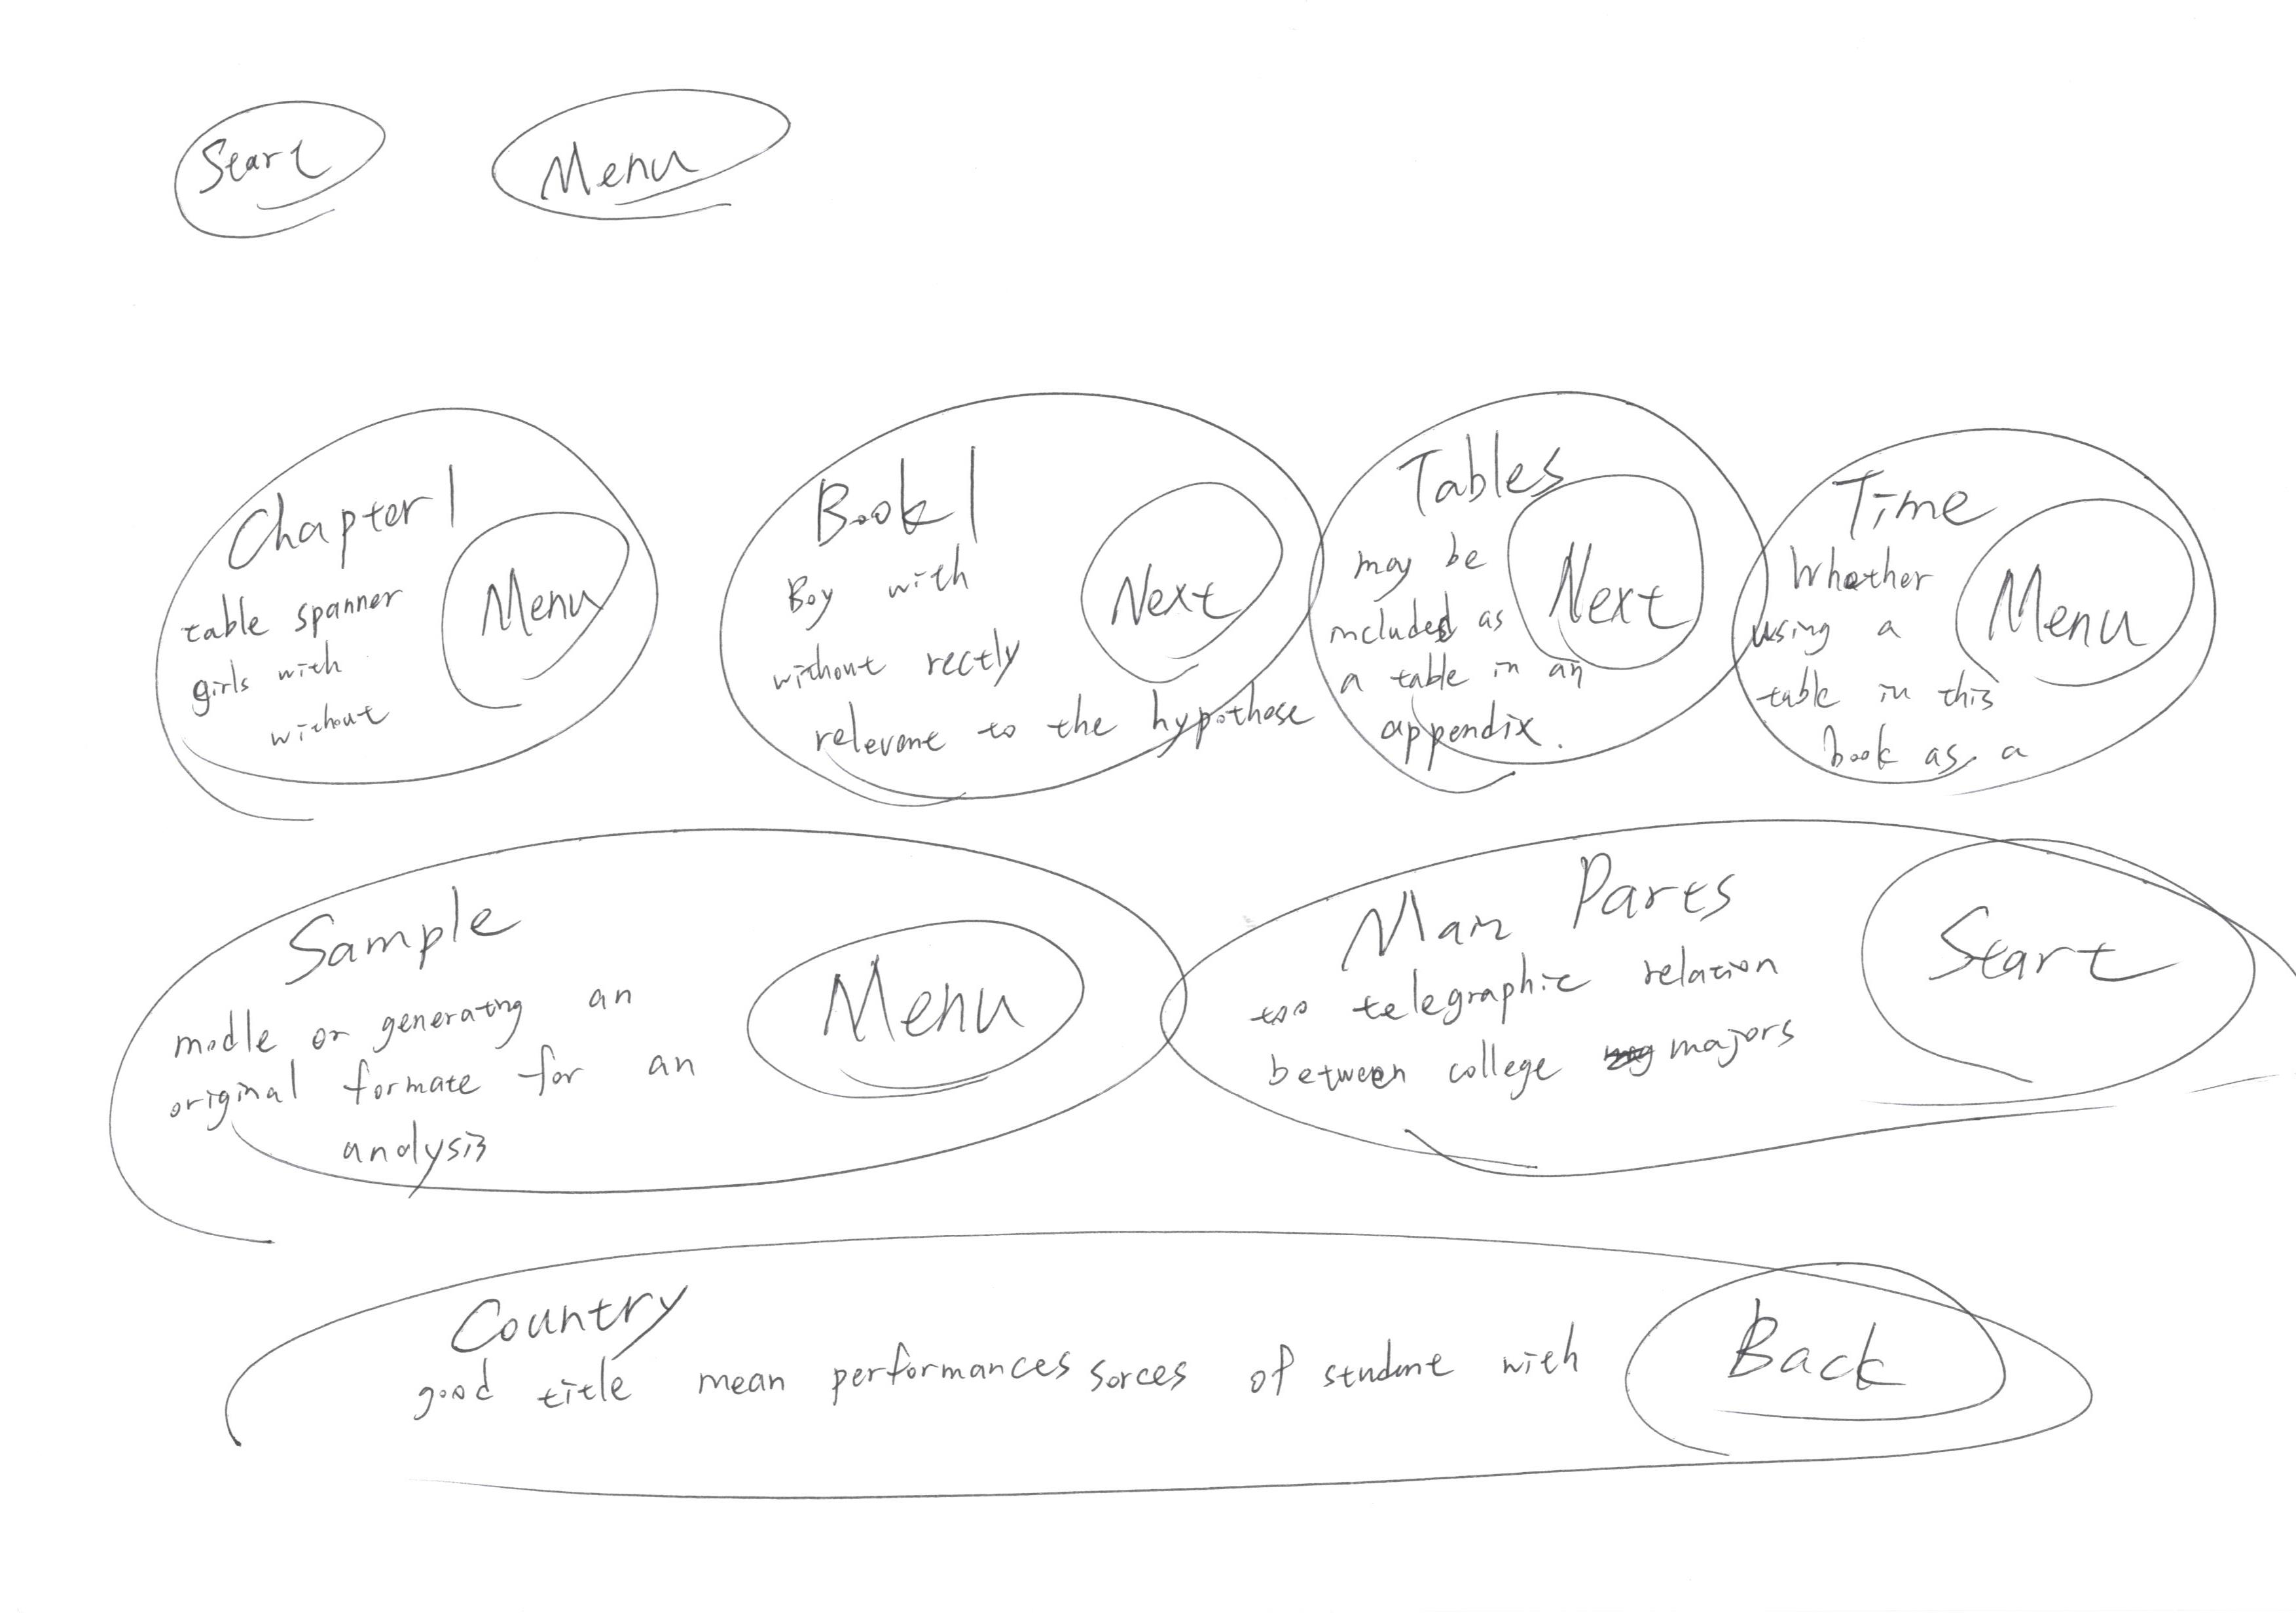 Start
Menu
Chapter 1
table spanner
girls with
without
Menu
Book 1
Boy with
without rectly
relevant to the hypothese
Next
Tables
may be
included as
a table in an
appendix.
Next
Time
Whether
using a
table in this
book as a
Menu
Sample
modle or generating an
original formate for an
analysis
Menu
Main Parts
too telegraphic relation
between college majors
Start
Country
good title mean performances sorces of student with
Back